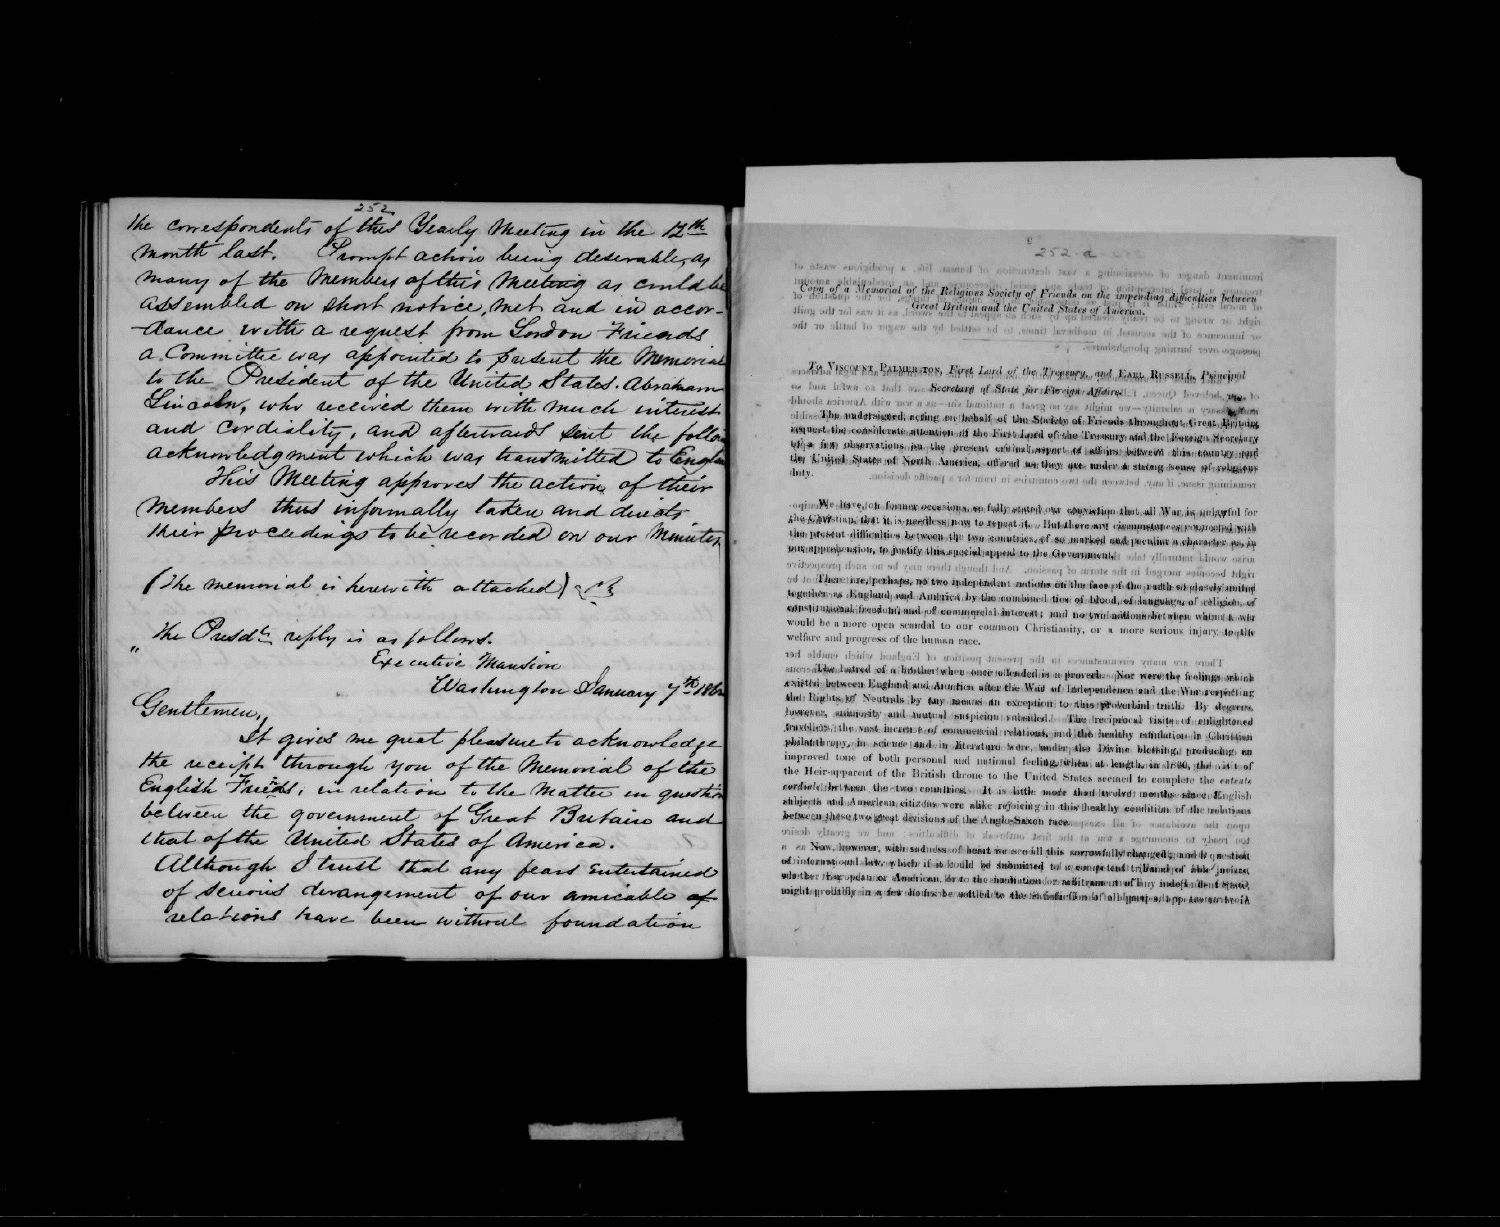 252
the correspondents of this Yearly Meeting in the 12th
month last. Prompt action being deserable, as
many of the Members of this Meeting as could be
assembled on short notice, met and in accor-
-dance with a request from London Friends
a Committee was appointed to present the Memorial
to the President of the United States. Abraham
Lincoln, who received them with much interest
and cordiality, and afterwards sent the
acknowledgment which was transmitted to
This Meeting approves the action of their
Members thus informally taken and directs
their proceedings to be recorded on our Minutes
(The memorial is herewith attached)
The Presdts reply is as follows.
"
Executive Mansion
Washington January 7th
Gentlemen,
It gives me great pleasure to acknowledge
the receipt through you of the Memorial of the
English Friends, in relation to the Matter in question
between the government of Great Britain and
that of the United States of America.
Although I trust that any fears entertained
of serious derangement of our amicable of
relations have been without foundation
252-a
Copy of a Memorial of the Religious Society of Friends on the impending difficulties between
Great Britain and the United States of America.
To Viscount Palmerston, First Lord of the Treasury, and Earl Russell, Principal
Secretary of State for Foreign Affairs.
The undersigned, acting on behalf of the Society of Friends throughout Great Britain,
request the considerate attention of the First Lord of the Treasury and the Foreign Secretary
to a few observations on the present critical aspect of affairs between this country and
the United States of North America, offered as they are under a strong sense of religious
duty.
We have, on former occasions, so fully stated our conviction that all War is unlawful for
the Christian, that it is needless now to repeat it. But there are circumstances connected with
the present difficulties between the two countries, of so marked and peculiar a character as, in
our apprehension, to justify this special appeal to the Government.
There are, perhaps, no two independent nations on the face of the earth so closely united
together as England and America by the combined ties of blood, of language, of religion, of
constitutional freedom, and of commercial interest; and no two nations between whom a war
would be a more open scandal to our common Christianity, or a more serious injury to the
welfare and progress of the human race.
The hatred of a brother when once offended is a proverb. Nor were the feelings which
existed between England and America after the War of Independence and the War respecting
the Rights of Neutrals by any means an exception to this proverbial truth. By degrees,
however, animosity and mutual suspicion subsided. The reciprocal visits of enlightened
travellers, the vast increase of commercial relations, and the healthy emulation in Christian
philanthropy, in science and in literature were, under the Divine blessing, producing an
improved tone of both personal and national feeling, when at length, in 1860, the visit of
the Heir-apparent of the British throne to the United States seemed to complete the entente
cordiale between the two countries. It is little more than twelve months since English
subjects and American citizens were alike rejoicing in this healthy condition of the relations
between these two great divisions of the Anglo-Saxon race.
Now, however, with sadness of heart we see all this sorrowfully changed; and a question
of international law, which if it could be submitted to a competent tribunal of able jurists,
whether European or American, or to the mediation or arbitrament of any independent State,
might probably in a few hours be settled to the satisfaction of all